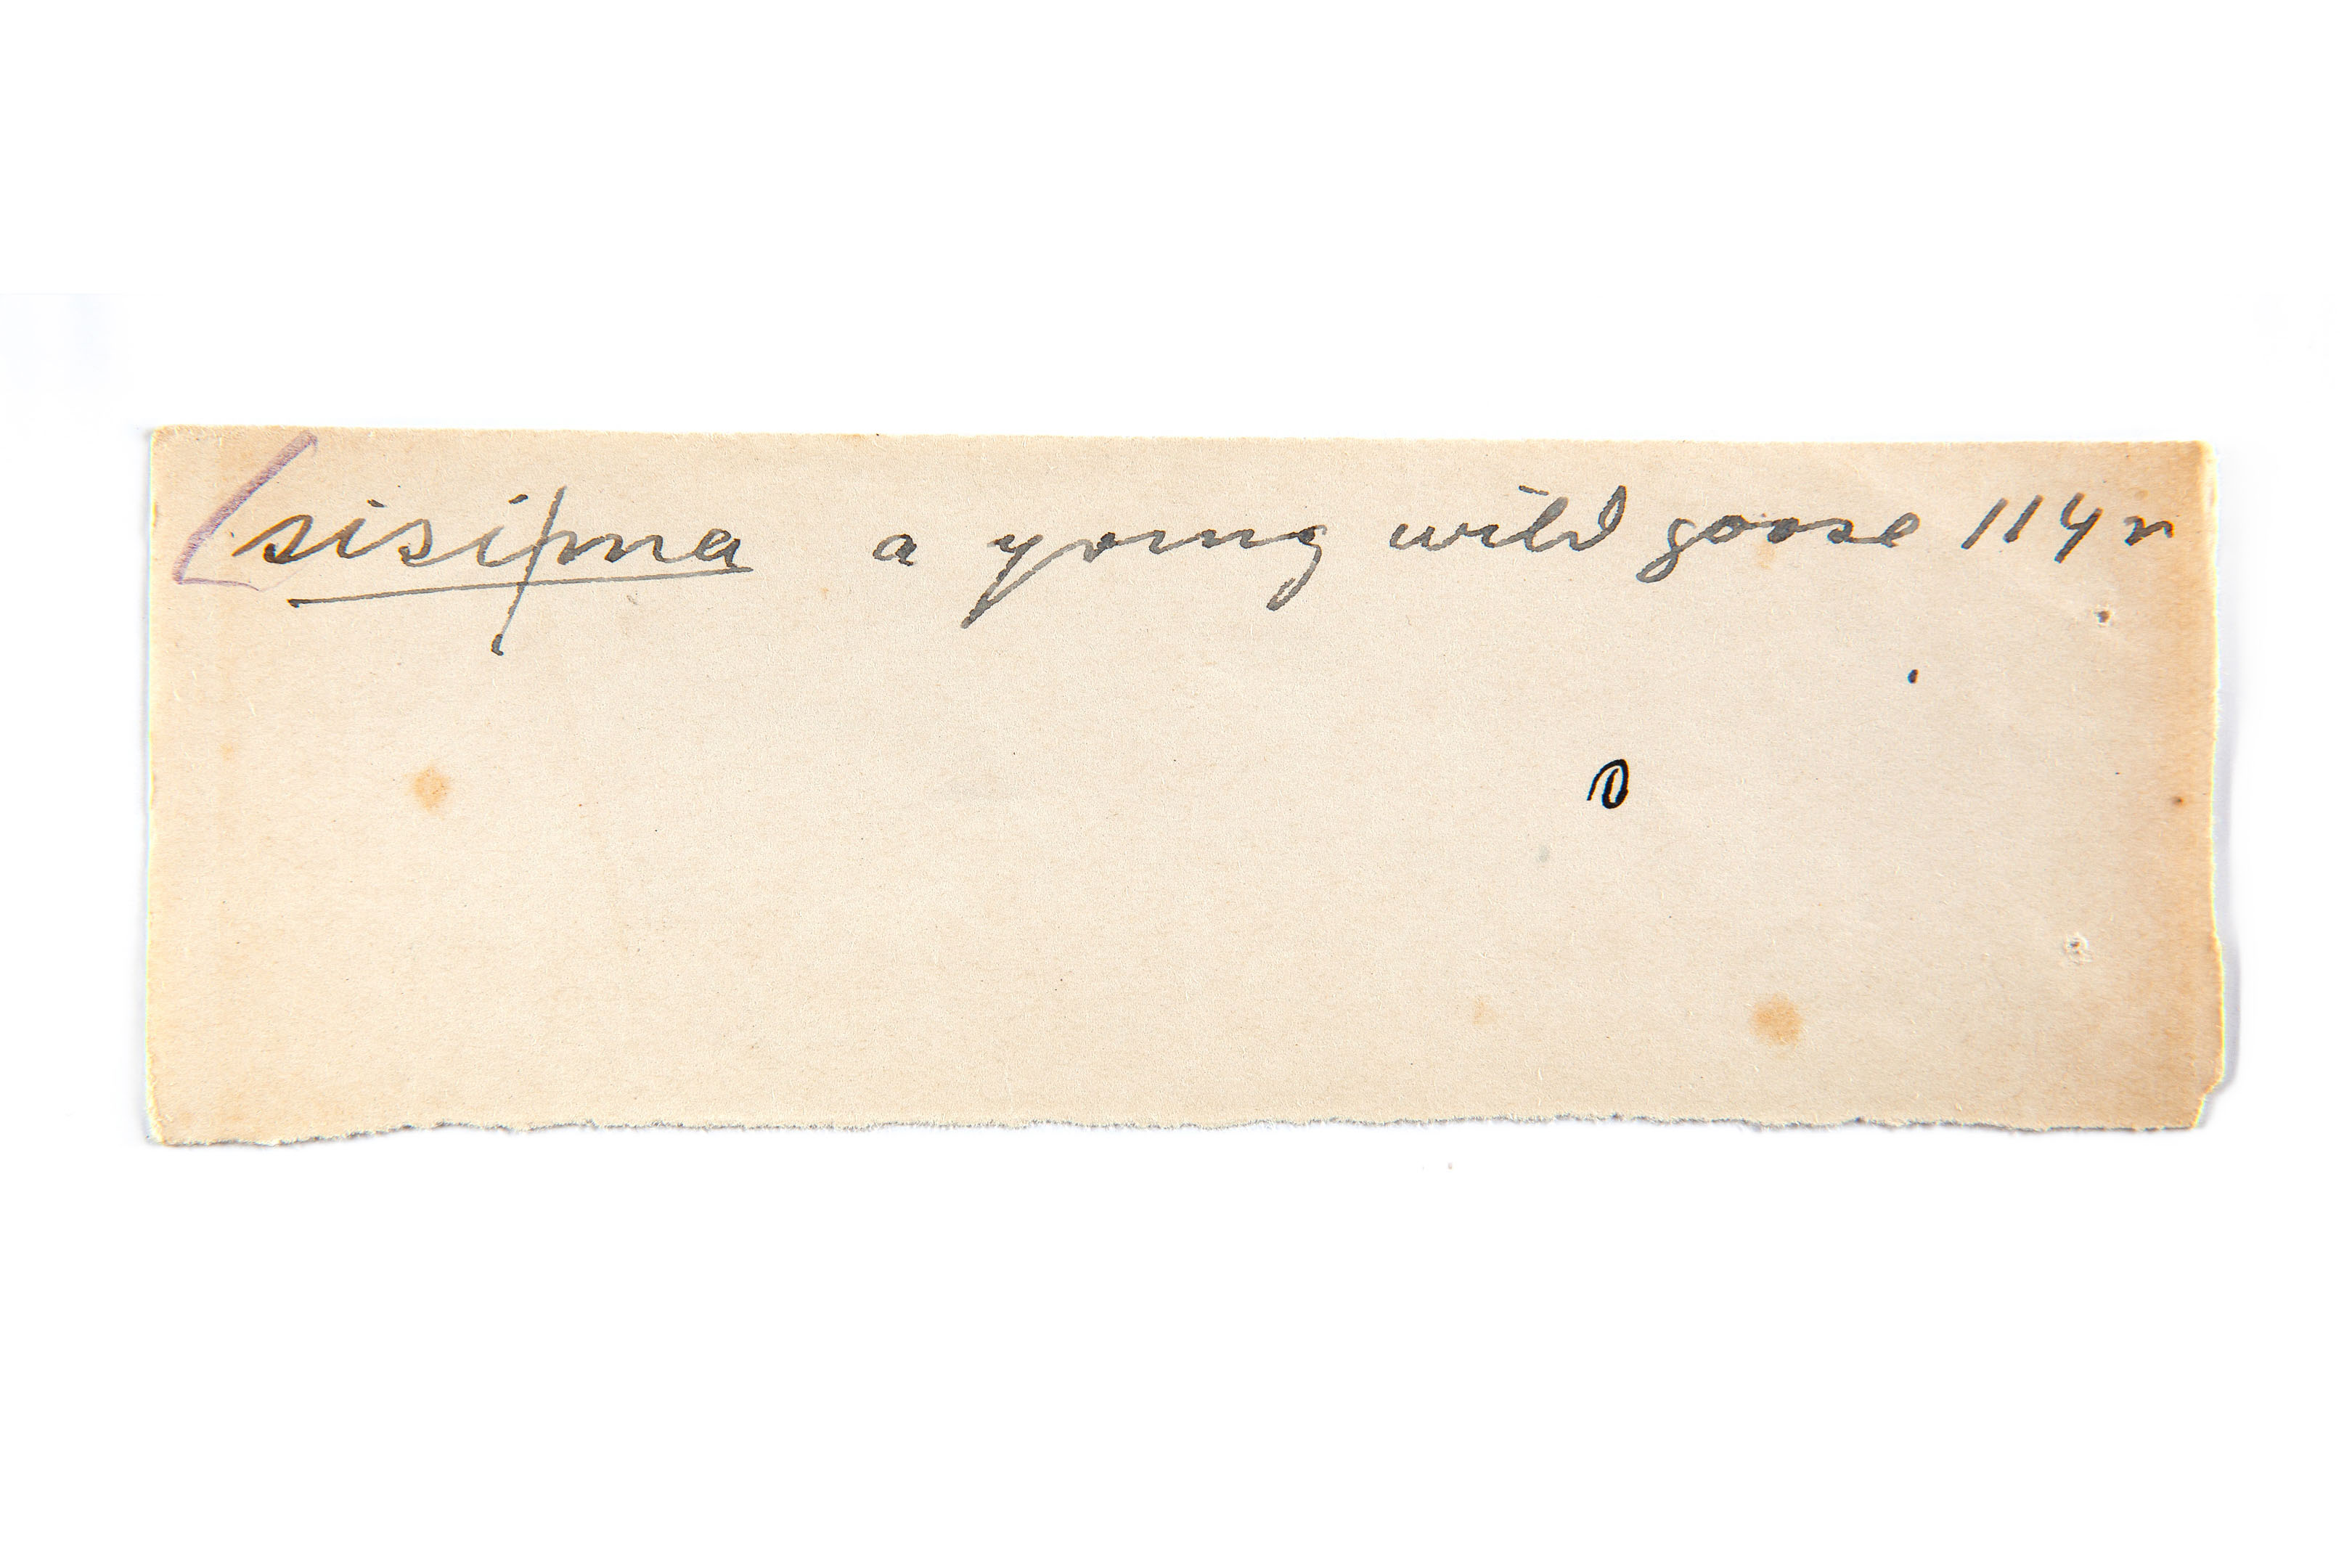 sisipma a young wild goose 114 n